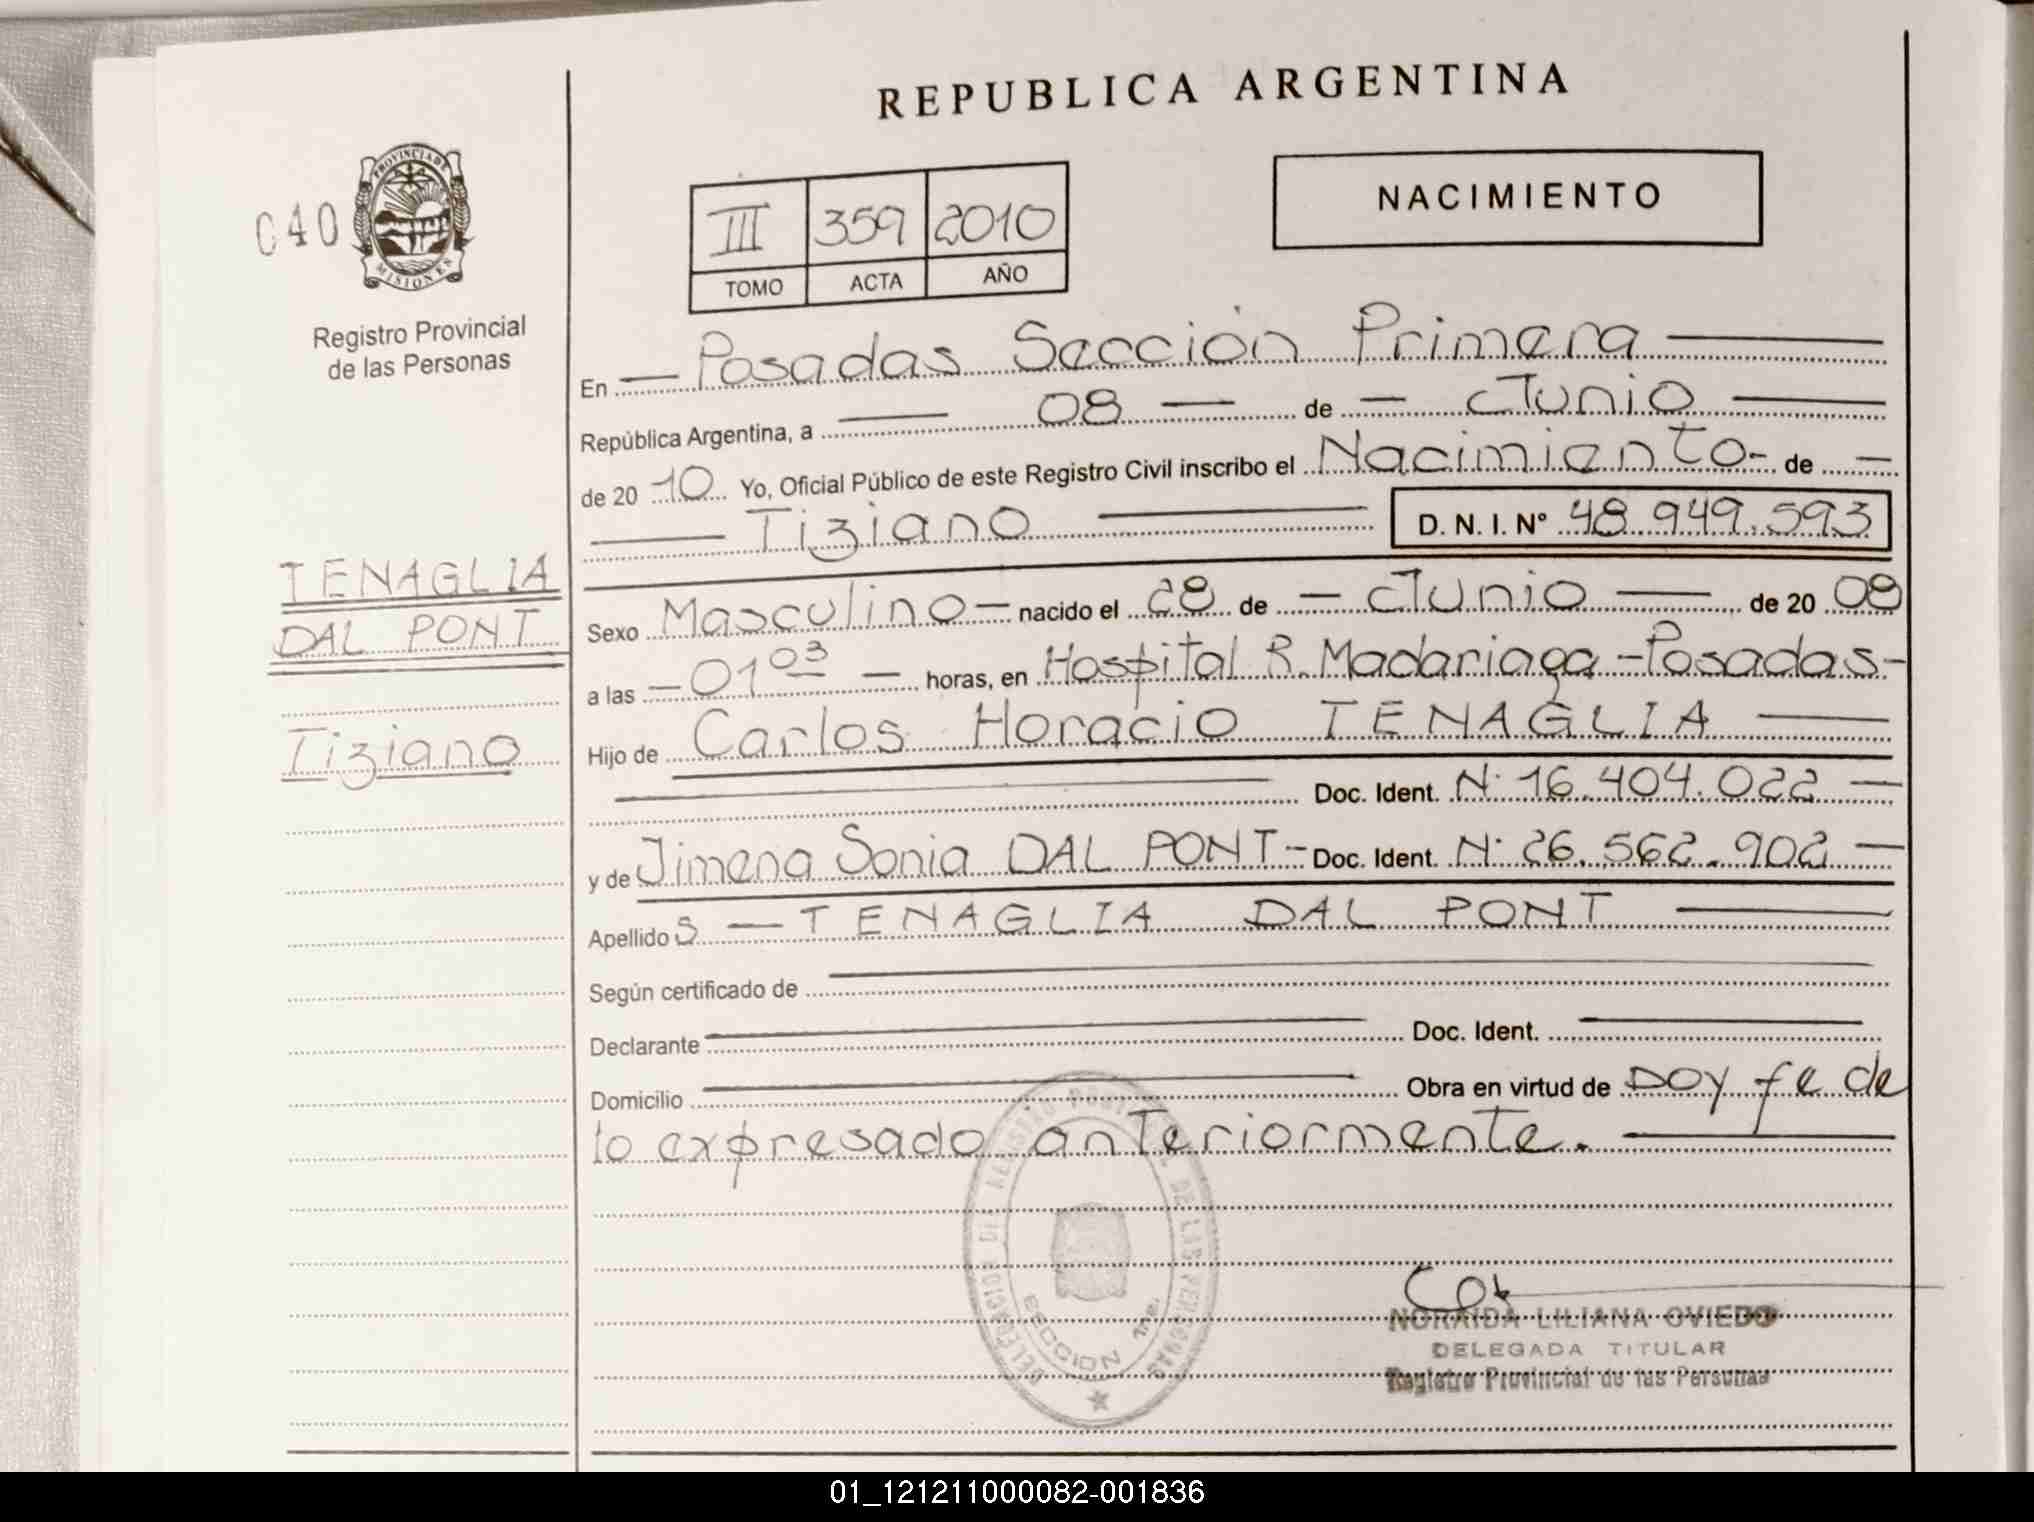 REPUBLICA ARGENTINA
040
PROVINCIA DE
MISIONES
Registro Provincial
de las Personas
III 359 2010
TOMO ACTA AÑO
NACIMIENTO
En — Posadas Sección Primera —
República Argentina, a — 08 — de — Junio —
de 20 10 Yo, Oficial Público de este Registro Civil inscribo el Nacimiento - de —
— Tiziano — D. N. I. Nº 48.949.593
TENAGLIA
DAL PONT
Tiziano
Sexo Masculino — nacido el 28 de — Junio — de 20 09
a las — 01 03 — horas, en Hospital R. Madariaga - Posadas -
Hijo de Carlos Horacio TENAGLIA —
— Doc. Ident. N· 16.404.022 —
y de Jimena Sonia DAL PONT - Doc. Ident. N· 26.562.902 —
Apellido S — TENAGLIA DAL PONT —
Según certificado de —
Declarante — Doc. Ident. —
Domicilio — Obra en virtud de DOY fe de
lo expresado anteriormente. —
SECCION 1ra.
NORAIDA LILIANA OVIEDO
DELEGADA TITULAR
Registro Provincial de las Personas
01_121211000082-001836